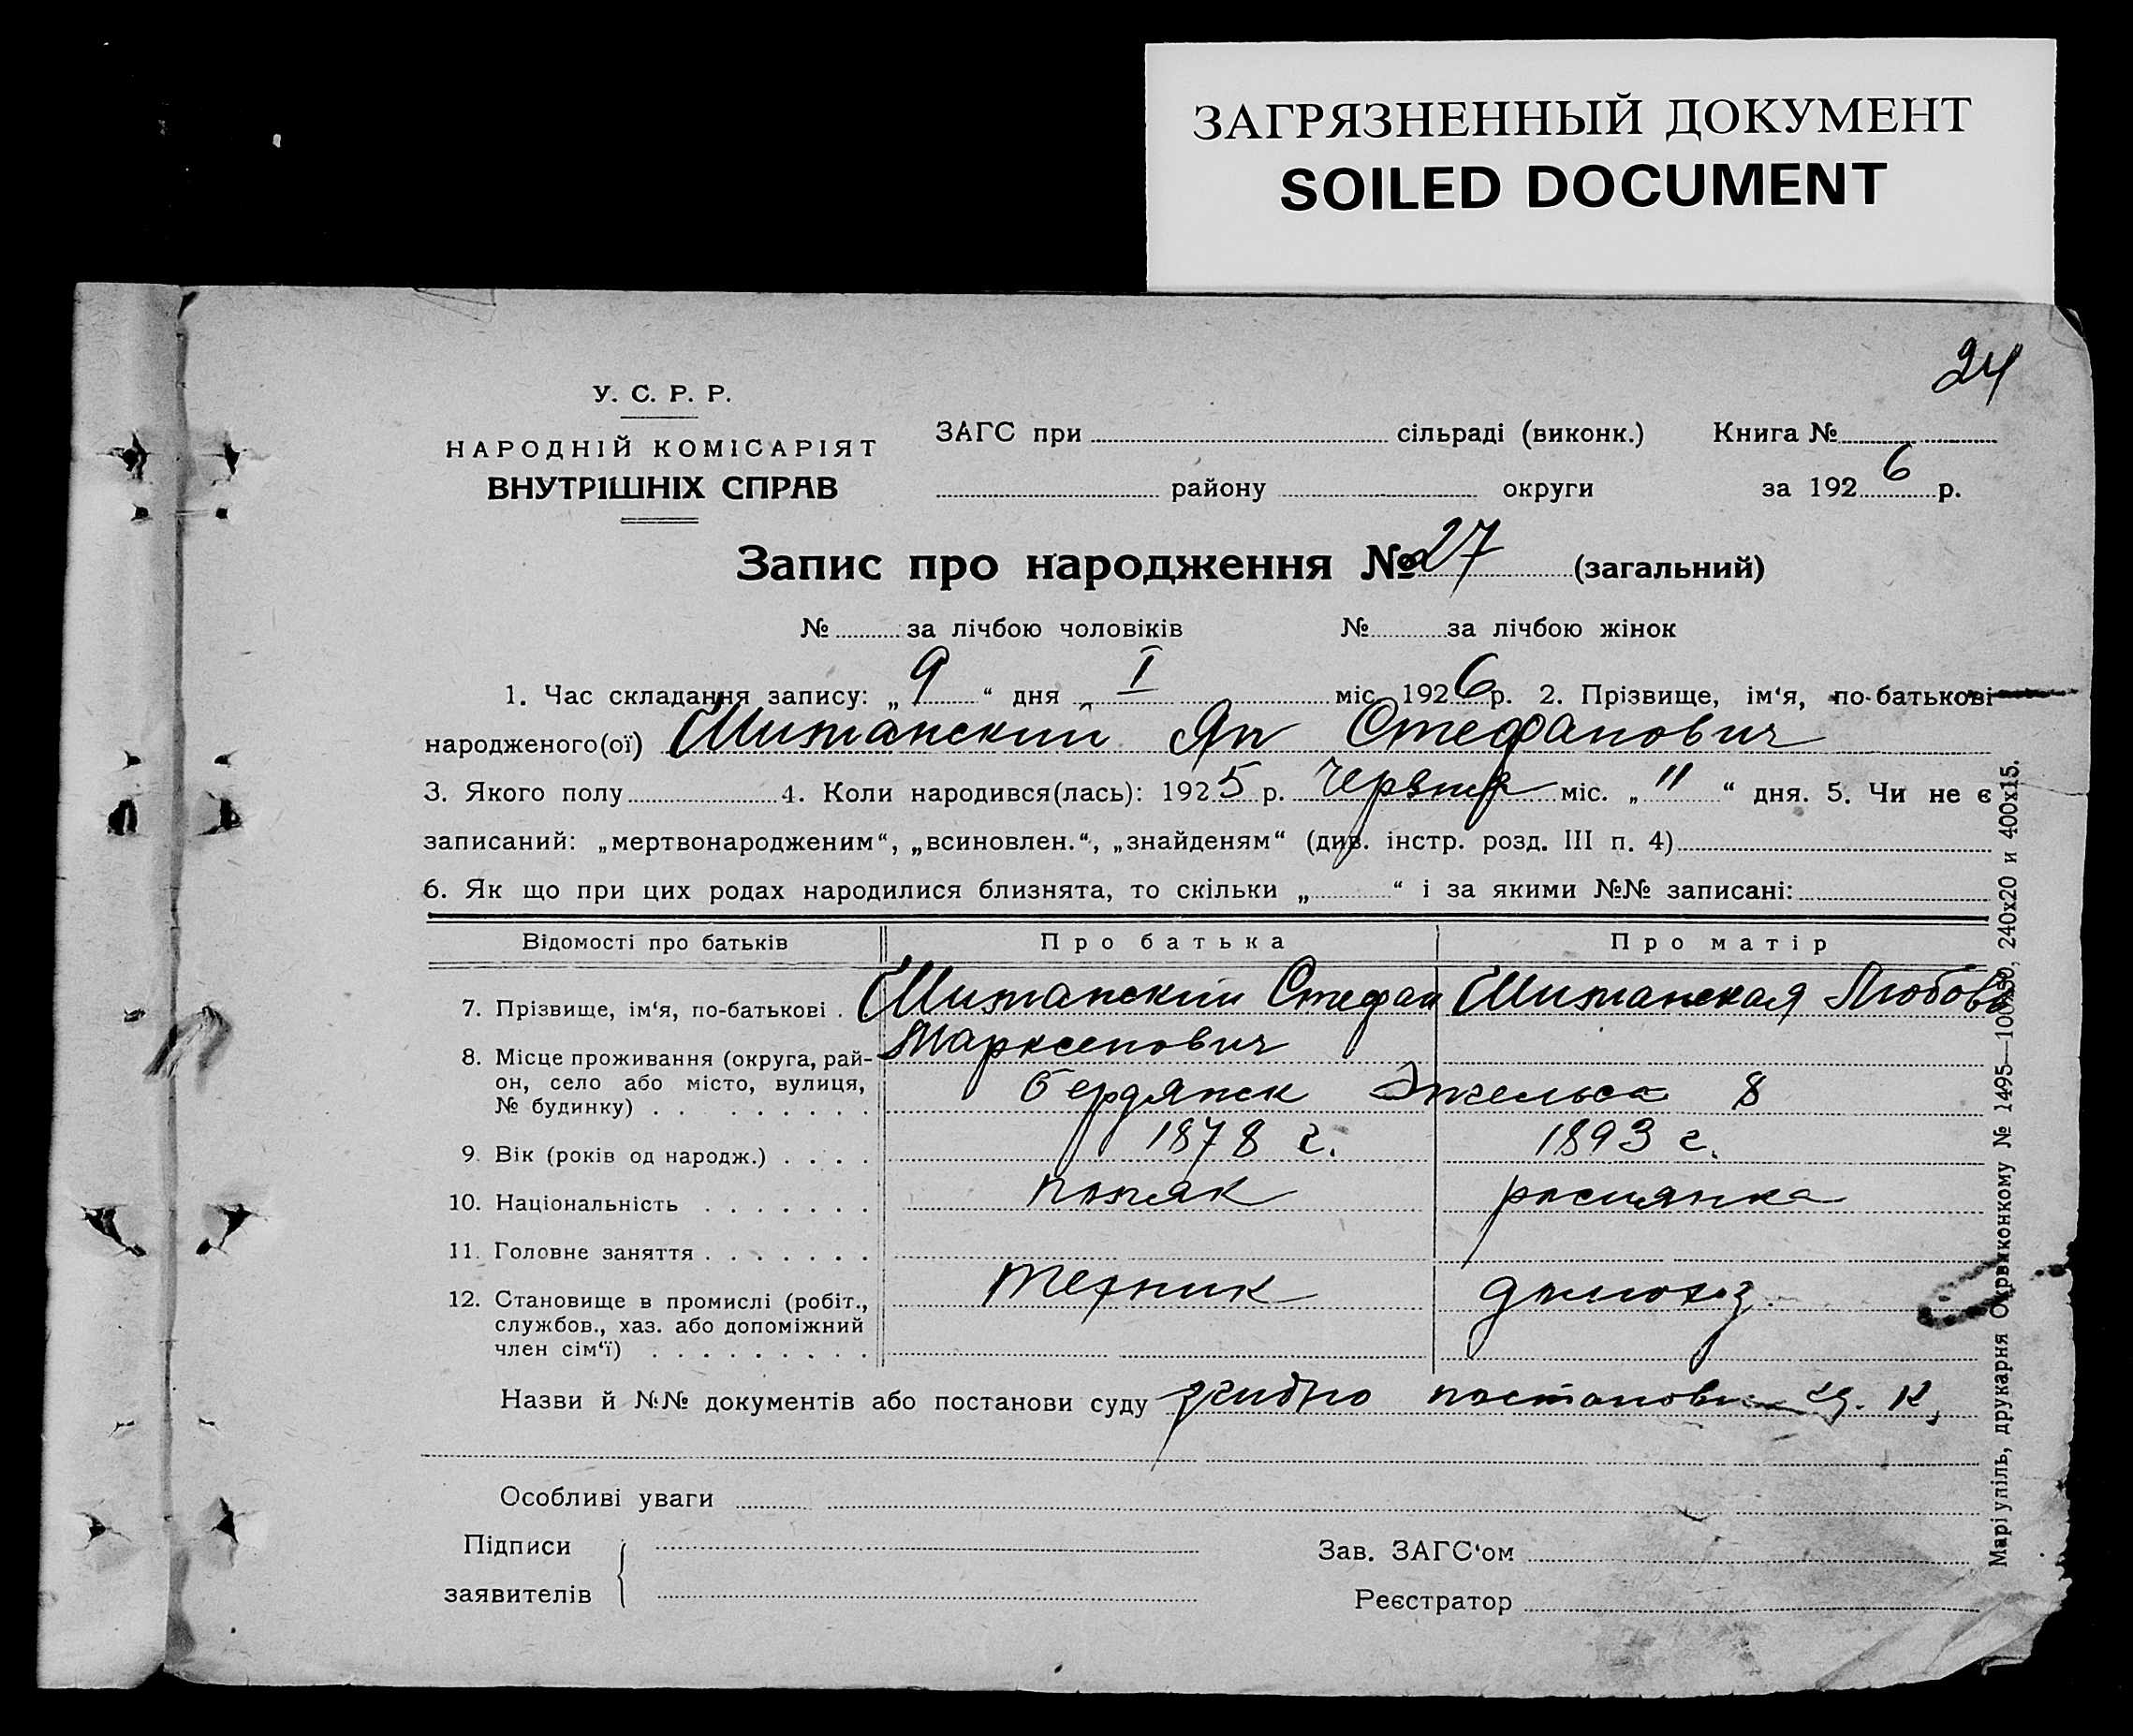 ЗАГРЯЗНЕННЫЙ ДОКУМЕНТ
SOILED DOCUMENT
24
У. С. Р. Р.
НАРОДНІЙ КОМІСАРІЯТ
ВНУТРІШНІХ СПРАВ
ЗАГС при сільраді (виконк.) Книга №
району округи за 1926 р.
Запис про народження № 27 (загальний)
№ за лічбою чоловіків № за лічбою жінок
1. Час складання запису: „9“ дня I міс. 1926 р. 2. Прізвище, ім‘я, по-батькові
народженого(ої) Шиманский Ян Стефанович
3. Якого полу 4. Коли народився(лась): 1925 р. Червня міс. „11“ дня. 5. Чи не є
записаний: „мертвонародженим“, „всиновлен.“, „знайденям“ (див. інстр. розд. III п. 4)
6. Як що при цих родах народилися близнята, то скільки „ “ і за якими №№ записані:
Відомості про батьків Про батька Про матір
7. Прізвище, ім‘я, по-батькові . Шиманский Стефан Шиманская Любовь
8. Місце проживання (округа, рай-
он, село або місто, вулиця,
№ будинку) . . . . . . . . . Бердянск 8
9. Вік (років од народж.) . . . . 1878 г. 1893 г.
10. Національність . . . . . . . поляк росиянка
11. Головне заняття . . . . . . .
12. Становище в промислі (робіт., техник домохоз.
службов., хаз. або допоміжний
член сім‘ї) . . . . . . . . .
Назви й №№ документів або постанови суду згидно постанови
Особливі уваги
Підписи
заявителів
Зав. ЗАГС‘ом
Реєстратор
Маріупіль, друкарня Окрвиконкому № 1495—100х50, 240х20 и 400х15.